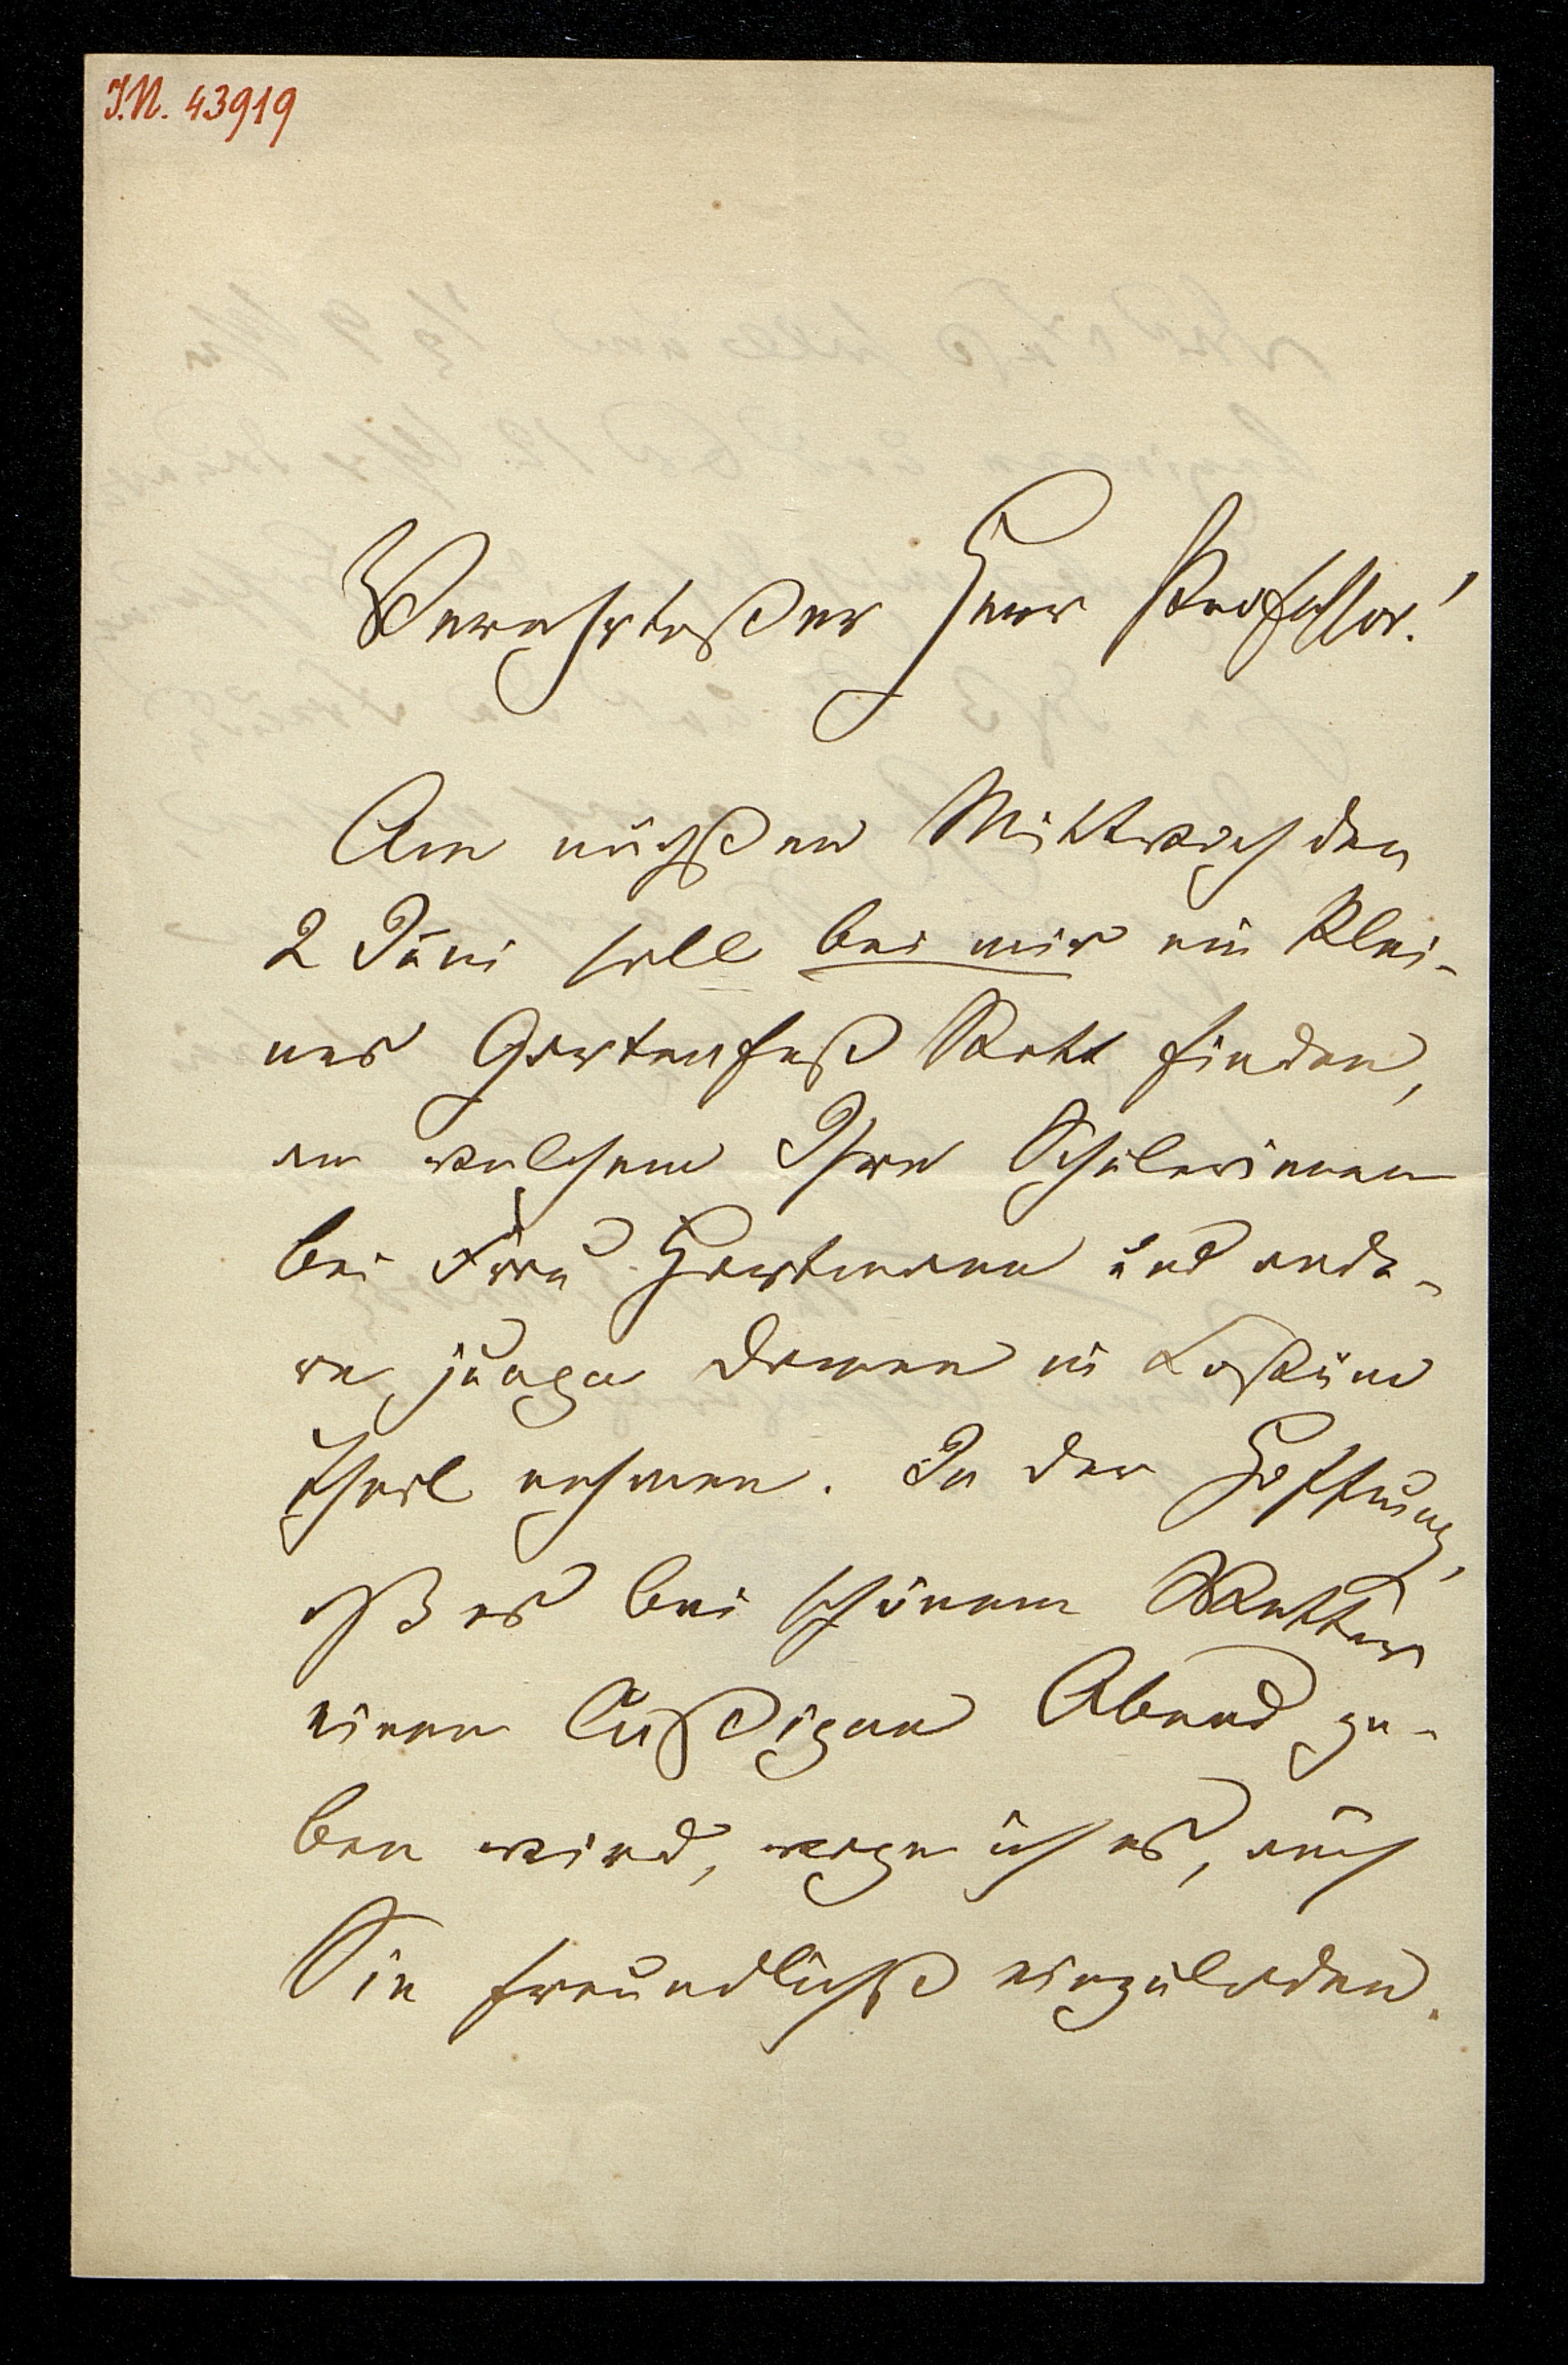 I.N. 43919
Verehrtester Herr Professor!
Am nächsten Mittwoch den
2 Juni soll bei mir ein klei-
nes Gartenfest Statt finden,
an welchem Ihre Schülerinnen
bei Frau Hartmann und ande-
re junge Damen in Costüm
Theil nehmen. In der Hoffnung,
daß es bei schönem Wetter
einen lustigen Abend ge-
ben wird, wage ich es, auch
Sie freundlichst einzuladen.